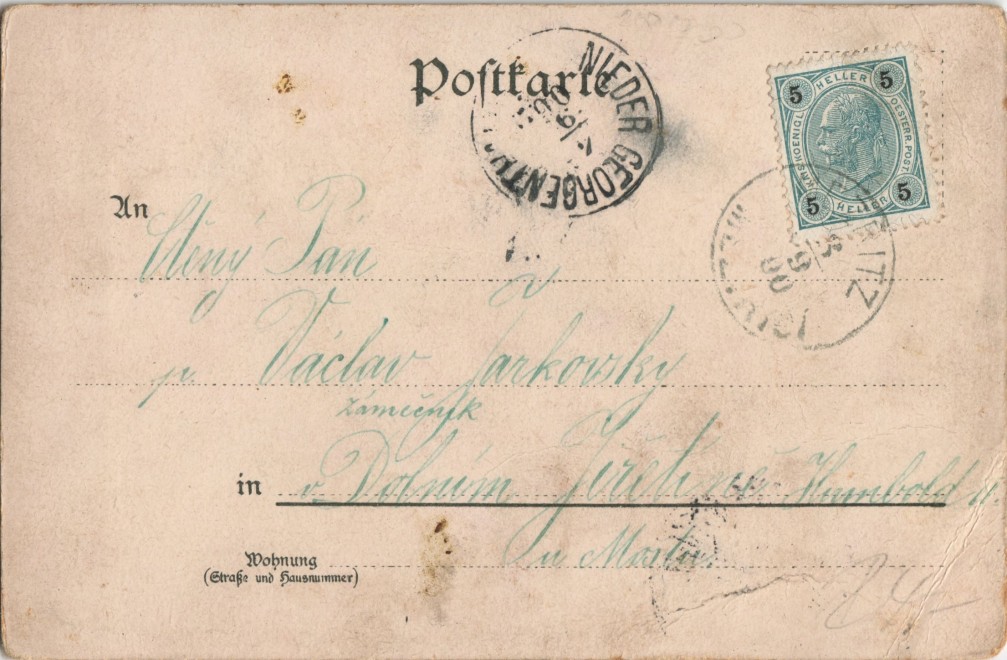 Postkarte
NIEDER GEORGENTH
5 HELLER 5
KAIS. KOENIGL. OESTERR. POST.
5 HELLER 5
ITZ
9
00
An
Ctěný Pán
p Václav Jarkovsky
zámečník
in v Dolním Jiřetíně Humbold
u Mostu.
Wohnung
(Straße und Hausnummer)